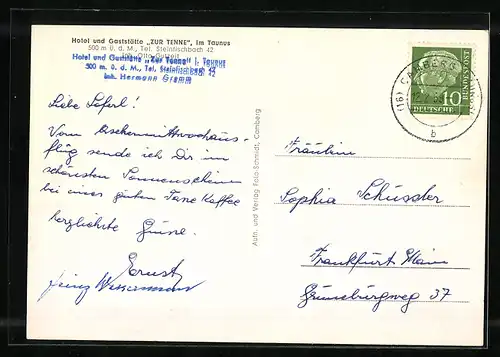 Hotel und Gaststätte „ZUR TENNE“, im Taunus
500 m ü. d. M., Tel. Steinfischbach 42
Inh. Otto Gutzeit
Hotel und Gaststätte „Zur Tenne“ i. Taunus
500 m. ü. d. M., Tel. Steinfischbach 42
Inh. Hermann Gramm
Liebe Soferl!
Vom Aschermittwochaus-
flug sende ich Dir im
schönsten Sonnenschein
bei einer guten Tasse Kaffee
herzlichste Grüsse.
Ernst
Heinz Wassermann
Aufn. und Verlag Foto-Schmidt, Camberg
(16) CAMBERG
b
10
DEUTSCHE
BUNDESPOST
Fräulein
Sophia Schüssler
Frankfurt Main
Grüneburgweg 37